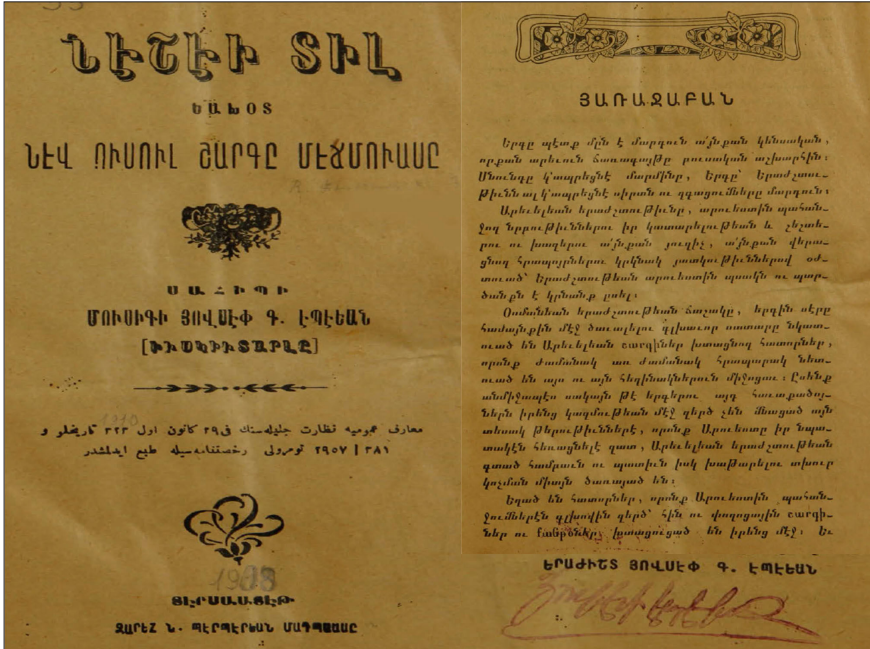 ՆԷՇԷԻ ՏԻԼ
ԵԱԽՕՏ
ՆԷՎ ՈՒՍՈՒԼ ՇԱՐԳԸ ՄԷՃՄՈՒԱՍԸ
ՍԱՀԻՊԻ
ՄՈՒՍԻԳԻ ՅՈՎՍԷՓ Գ. ԷՊԷԵԱՆ
معارف عموميه نظارت جليله‌سنك فى ٢٩ كانون اول ٣٢٣ تاريخلو و
٣٨١ | ٢٩٥٧ نومرولى رخصتنامه‌سيله طبع ايدلمشدر
ՏԷՐՍԱԱՏԷԹ
ԶԱՐԵՀ Ն. ՊԷՐՊԷՐԵԱՆ ՄԱԴՊԱԱՍԸ
ՅԱՌԱՋԱԲԱՆ
Երգը պէտք մըն է մարդուն այնքան կենսական,
որքան արեւուն ճառագայթը բուսական աշխարհին։
Սնունդը կ՚ապրեցնէ մարմինը, Երգը՝ Երաժշտու-
թիւնն ալ կ՚ապրեցնէ սիրտն ու զգացումները մարդուն։
Արեւելեան երաժշտութիւնը, արուեստին պահան-
ջող նրբութիւններու իր կատարելութեան և շեշտե-
րու ու խաղերու այնքան յուզիչ, այնքան վերա-
ցնող հրապոյրներու կրկնակ յատկութիւններով օժ-
տուած՝ Երաժշտութեան արուեստին պսակն ու պար-
ծանքն է կրնանք ըսել։
Օսմանեան երաժշտութեան ճաշակը, երգին սէրը
հասարակութեան մէջ ծաւալելու գլխաւոր սատարը նկատ-
ուած են Արեւելեան շարգիներ խտացնող հատորներ,
որոնք ժամանակ առ ժամանակ հրապարակ նետ-
ուած են այս ու այն հեղինակներուն միջոցաւ։ Ըսենք
անմիջապէս սակայն թէ երգերու այդ հաւաքածոյ-
ներն իրենց կազմութեան մէջ զերծ չեն մնացած այն
տեսակ թերութիւններէ, որոնք Արուեստը իր նպա-
տակէն հեռացնելէ զատ, Արեւելեան երաժշտութեան
գտած համբաւն ու պատիւն իսկ խաթարելու տխուր
կոչման միայն ծառայած են։
Եղած են հատորներ, որոնք Արուեստին պահան-
ջումներէն գլխովին զերծ՝ հին ու փողոցային շարգի-
ներ ու խառնած են իրենց մէջ։ Եւ
ԵՐԱԺԻՇՏ ՅՈՎՍԷՓ Գ. ԷՊԷԵԱՆ